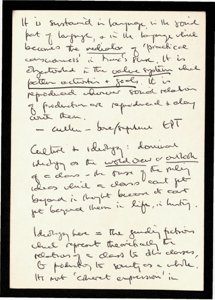 It is sustained in language in the social
part of language, & in the language which
becomes the mediator of 'practical
consciousness' in
in the value system which
pattern activities & goals. It is
reproduced wherever social relations
of production are reproduced & along
with them.
Culture & Ideology: dominant
ideology as the world view or outlook
of a class - the sense of the ruling
ideas which a class can't get
beyond in thought because it can't
get beyond them in life, in history.
Ideology here as the guiding fictions
which represent theoretically the
relations of a class to other classes,
to production, to society as a whole.
It's not 'coherent expression' in